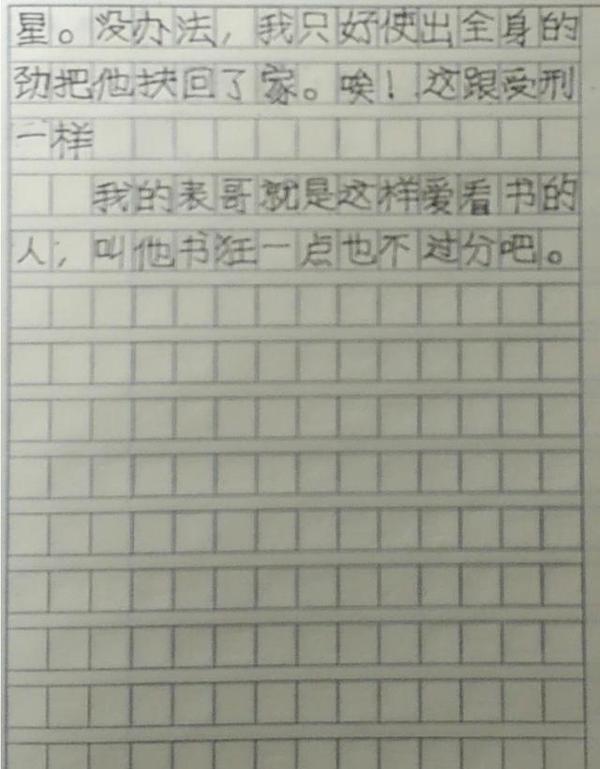 星。没办法，我只好使出全身的
劲把他扶回了家。唉！这跟受刑
一样
我的表哥就是这样爱看书的
人，叫他书狂一点也不过分吧。